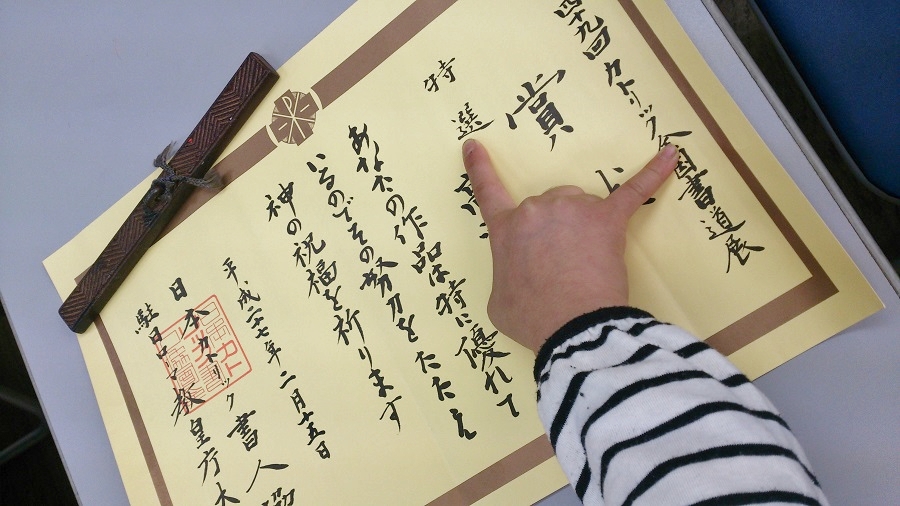 四十九回カトリック全国書道展
賞
特選
あなたの作品は特に優れて
いるのでその努力をたたえ
神の祝福を祈ります
平成二十七年二月十五日
日本カトリック書人協
駐日ローマ教皇庁大